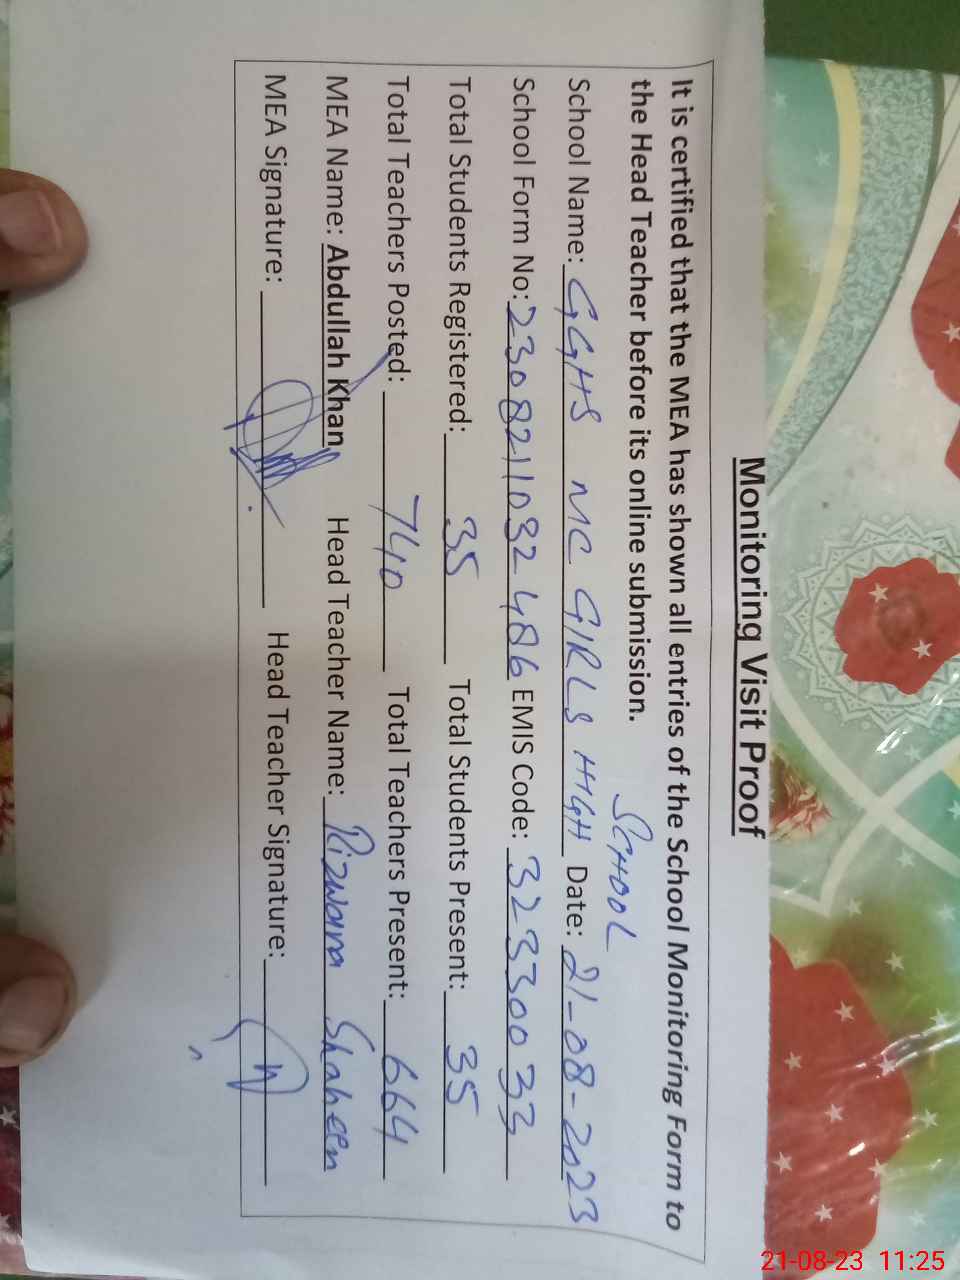 Monitoring Visit Proof
It is certified that the MEA has shown all entries of the School Monitoring Form to
the Head Teacher before its online submission.
SCHOOL
School Name: GGHS MC GIRLS HIGH Date: 21-08-2023
School Form No: 2308211032486 EMIS Code: 32330033
Total Students Registered: 35 Total Students Present: 35
Total Teachers Posted: 740 Total Teachers Present: 664
MEA Name: Abdullah Khan Head Teacher Name: Rizwana Shaheen
MEA Signature: Head Teacher Signature:
21-08-23 11:25